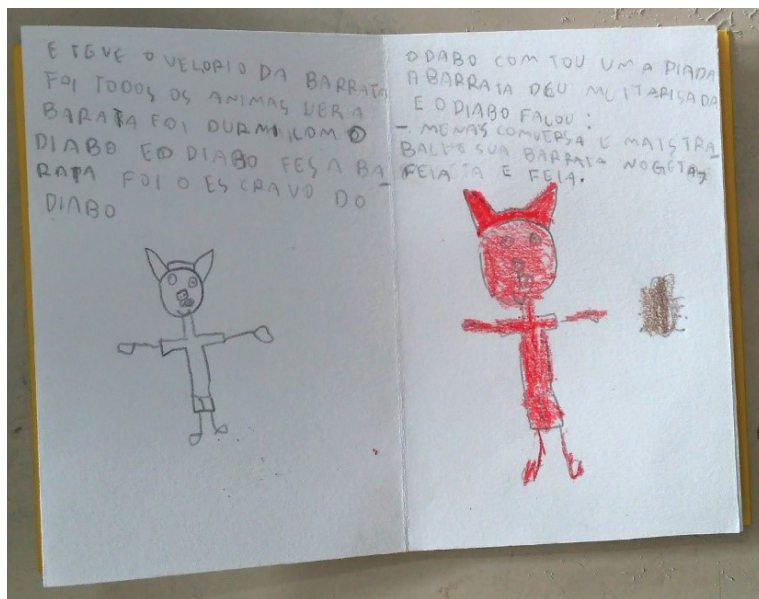 E TEVE O VELORIO DA BARRATA
FOI TODOS OS ANIMAS VER A
BARATA FOI DURMI COM O
DIABO E O DIABO FES A BA-
RATA FOI O ESCRAVO DO
DIABO
O DABO COM TOU UMA PIADA
A BARRATA DEU MUITA RISADA
E O DIABO FALOU:
- MENAS COMVERSA E MAIS TRA-
BALHO SUA BARRATA
FEIA E FEIA.